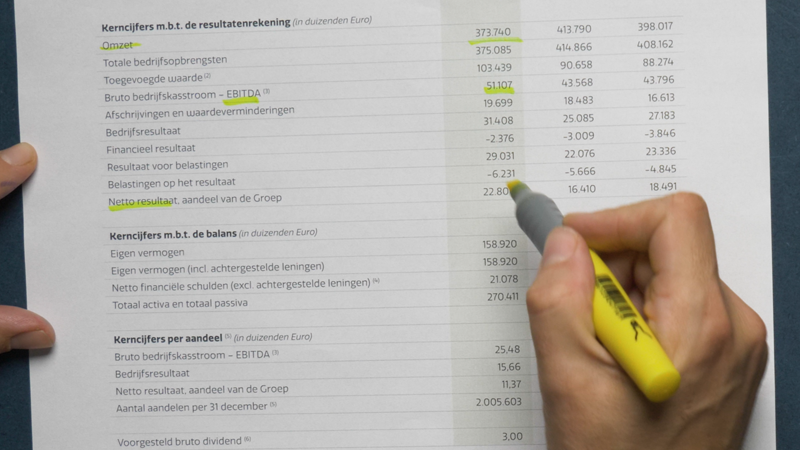 Kerncijfers m.b.t. de resultatenrekening (in duizenden Euro)
Omzet 373.740 413.790 398.017
Totale bedrijfsopbrengsten 375.085 414.866 408.162
Toegevoegde waarde (2) 103.439 90.658 88.274
Bruto bedrijfskasstroom – EBITDA (3) 51.107 43.568 43.796
Afschrijvingen en waardeverminderingen 19.699 18.483 16.613
Bedrijfsresultaat 31.408 25.085 27.183
Financieel resultaat -2.376 -3.009 -3.846
Resultaat voor belastingen 29.031 22.076 23.336
Belastingen op het resultaat -6.231 -5.666 -4.845
Netto resultaat, aandeel van de Groep 22.80 16.410 18.491
Kerncijfers m.b.t. de balans (in duizenden Euro)
Eigen vermogen 158.920
Eigen vermogen (incl. achtergestelde leningen) 158.920
Netto financiële schulden (excl. achtergestelde leningen) (4) 21.078
Totaal activa en totaal passiva 270.411
Kerncijfers per aandeel (5) (in duizenden Euro)
Bruto bedrijfskasstroom – EBITDA (3) 25,48
Bedrijfsresultaat 15,66
Netto resultaat, aandeel van de Groep 11,37
Aantal aandelen per 31 december (5) 2.005.603
Voorgesteld bruto dividend (6) 3,00